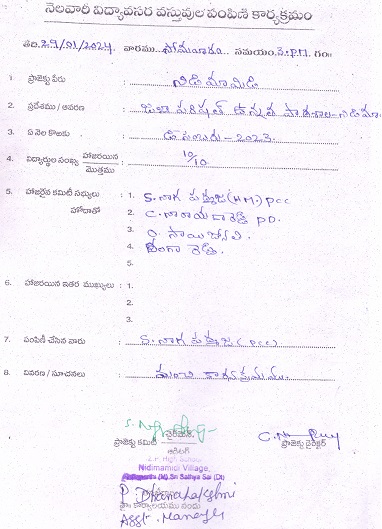 నెలవారీ విద్యావసర వస్తువుల పంపిణీ కార్యక్రమం
తేది. 29/01/2024 వారము.. సోమవారం.. సమయం
1. ప్రాజెక్టు పేరు : నిడిమామిడి
2. ప్రదేశము / ఆవరణ : జిల్లా పరిషత్ ఉన్నత పాఠశాల - నిడిమా
3. ఏ నెల కొరకు : డిసెంబరు - 2023
4. విద్యార్థుల సంఖ్య హాజరయిన / మొత్తము : 10/10
5. హాజరైన కమిటీ సభ్యులు : 1. S. నాగ (HM) PCC
హోదాతో 2. C. నారాయణరెడ్డి PD.
3. సాయి
4. రెడ్డి.
5.
6. హాజరయిన ఇతర ముఖ్యులు : 1.
2.
3.
7. పంపిణీ చేసిన వారు : S. నాగ (PCC)
8. వివరణ / సూచనలు : మంచి కార్యక్రమము.
ప్రాజెక్టు కమిటీ చైర్మన్ ప్రాజెక్టు డైరెక్టర్
ఆడిటర్
Z.P. High School
Nidimamidi Village,
Sri Sathya Sai (Dt)
P. Dhanalakshmi
కార్యాలయము నందు
Asst. Manager